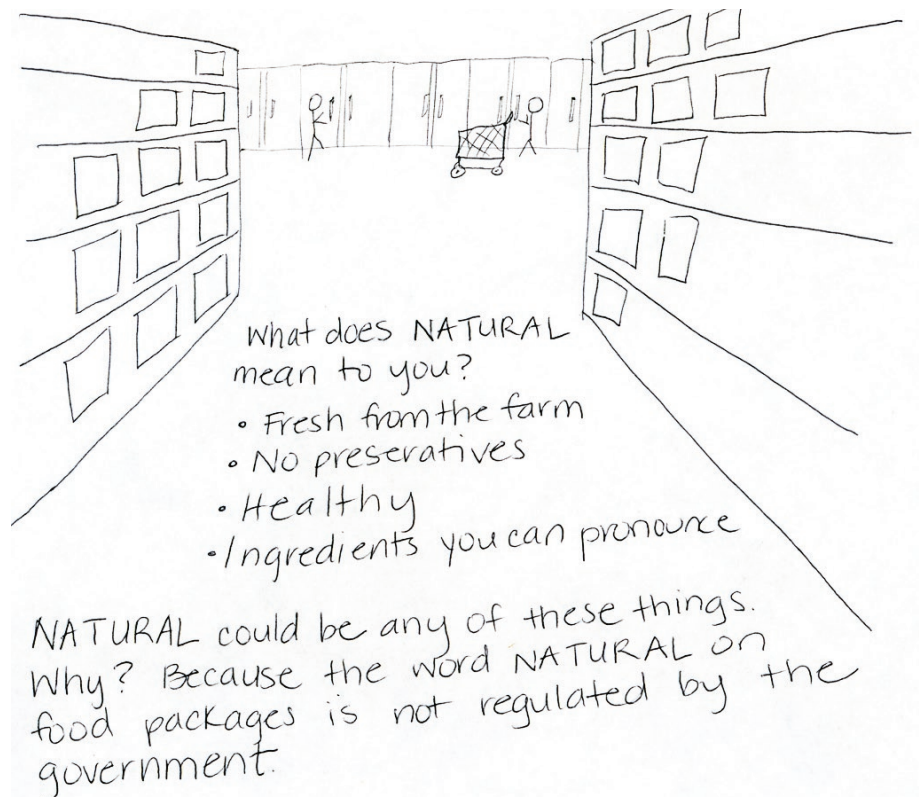 What does NATURAL
mean to you?
• Fresh from the farm
• No preseratives
• Healthy
• Ingredients you can pronounce
NATURAL could be any of these things.
Why? Because the word NATURAL on
food packages is not regulated by the
government.